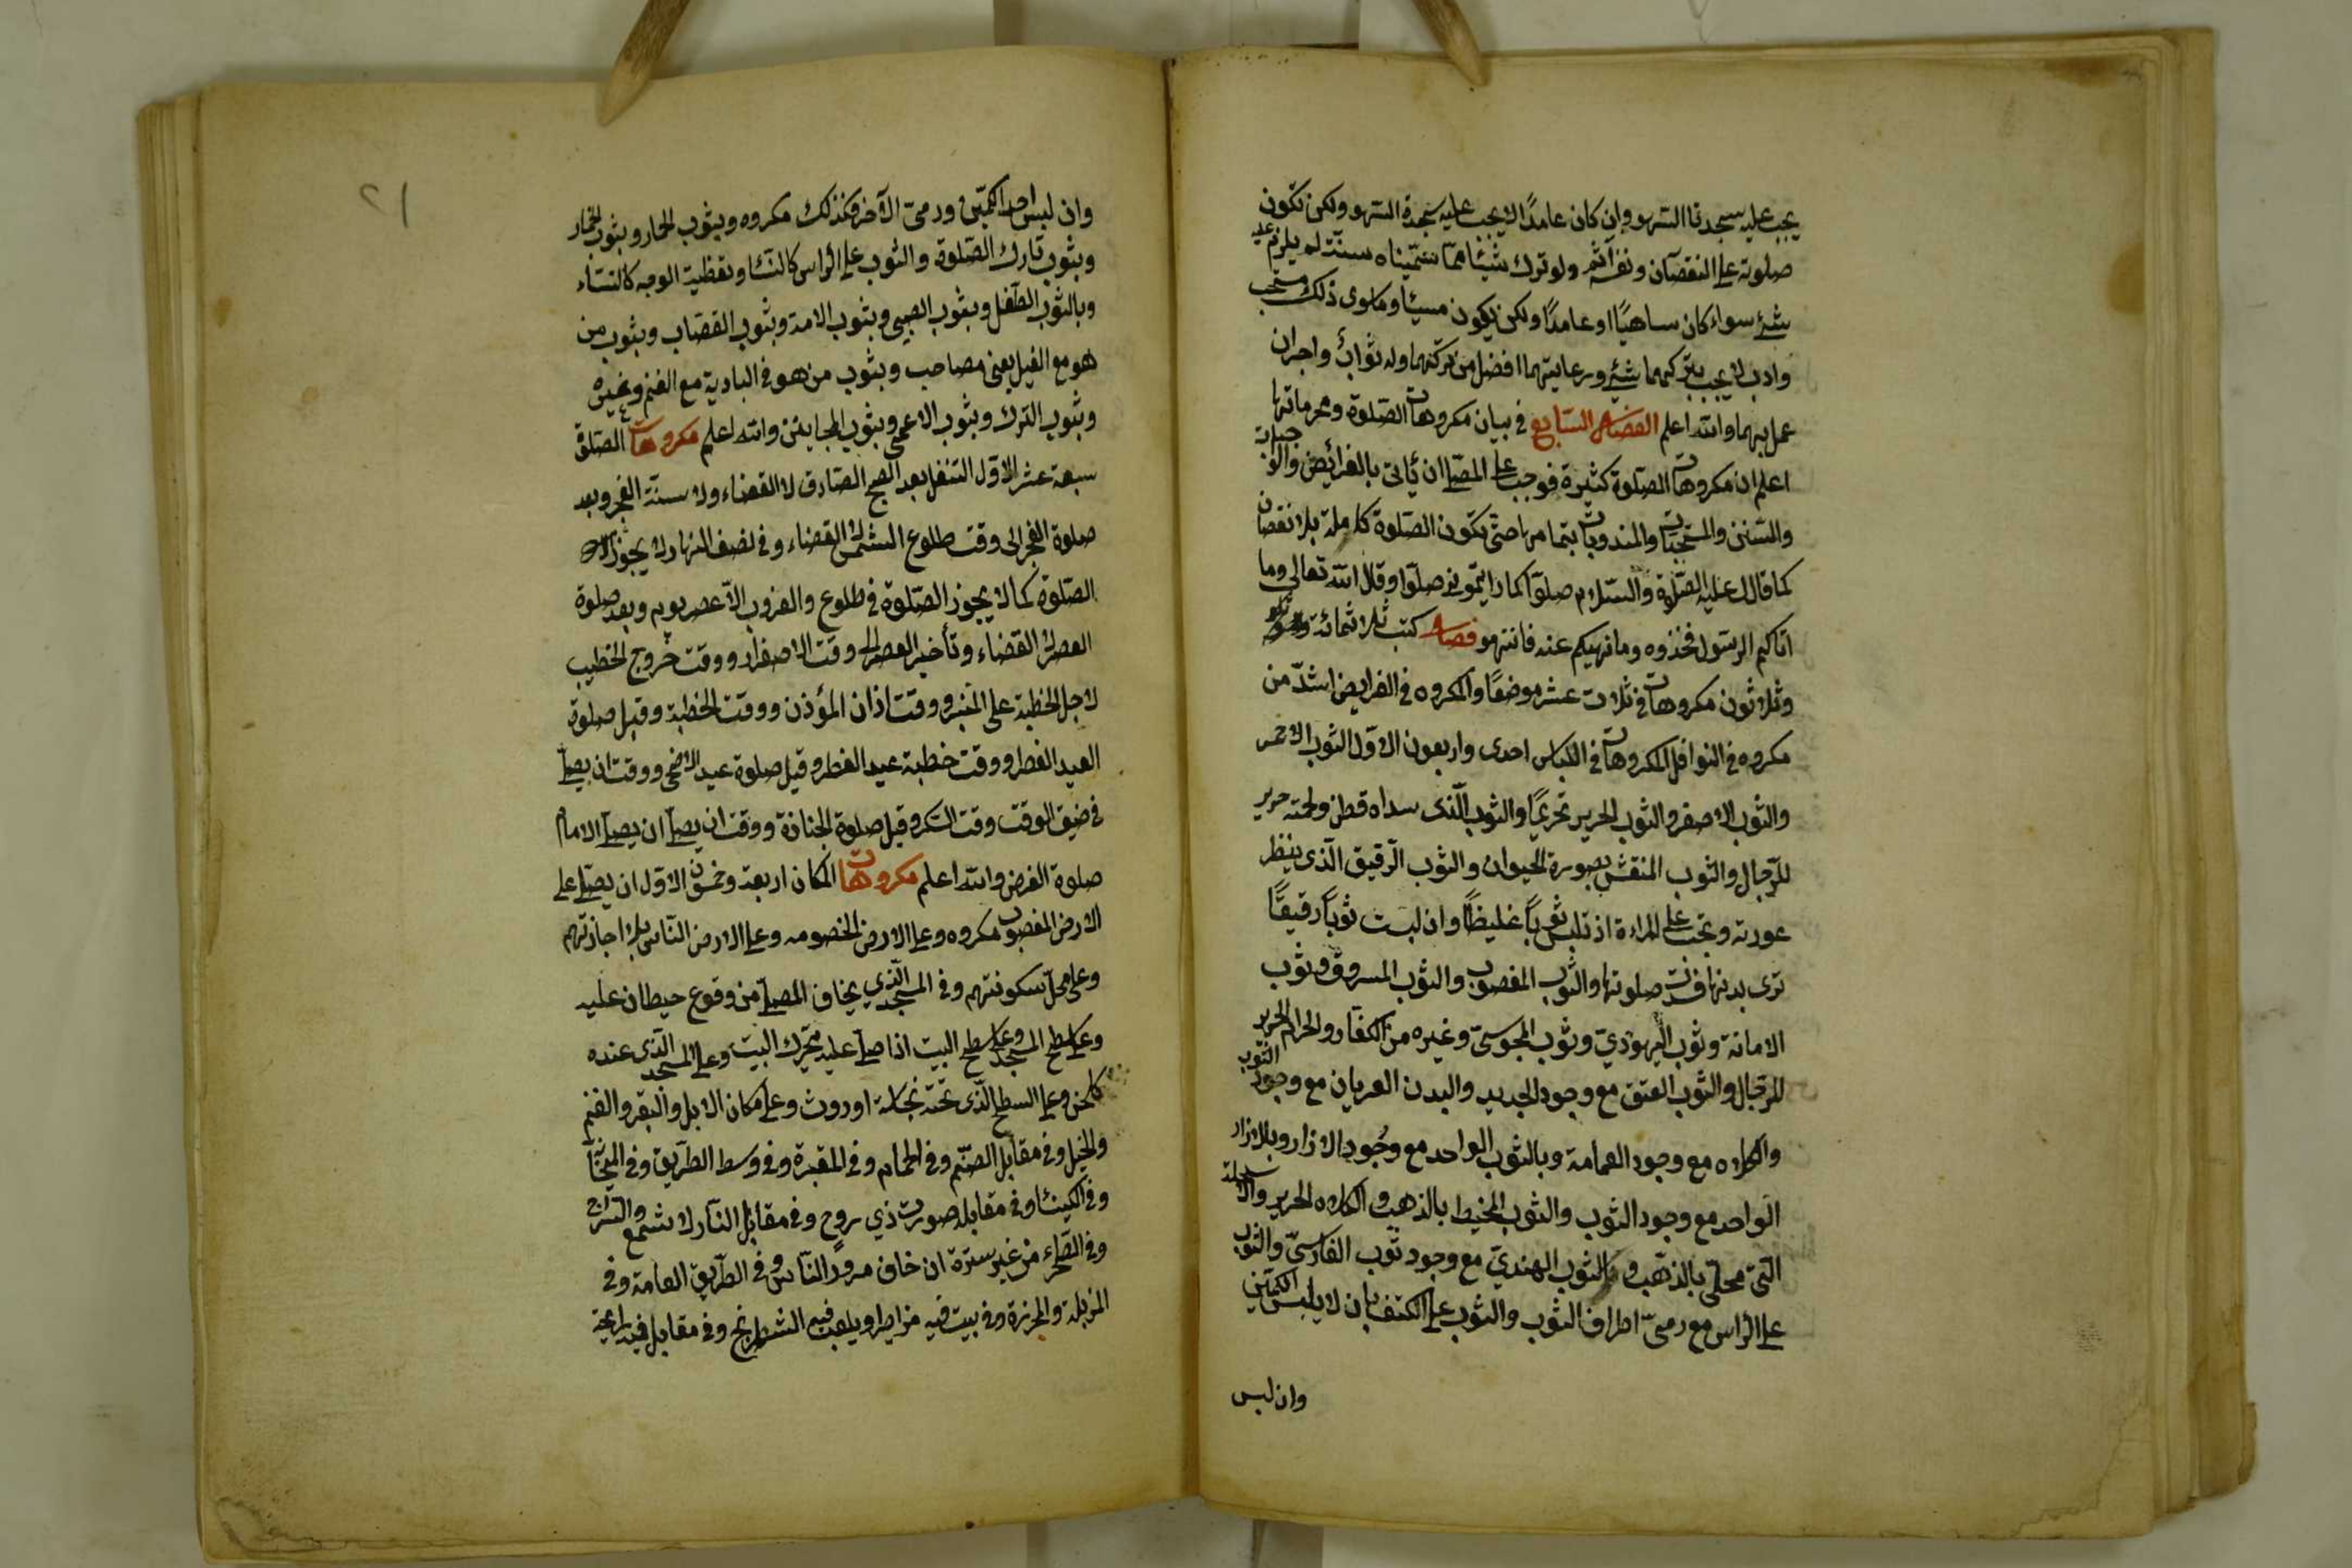 يجب عليه سجدتا السهو وإن كان عامدًا لا يجب عليه سجدة السهو ولكن تكون
صلوته على النقصان ونفسه آثم ولو ترك شيئا مما سمّيناه سنّة لم يلزم عليه
شئ سواء كان ساهيًا او عامدًا ولكن يكون مسيئا وماسوى ذلك مستحب
وادب لا يجب بتركهما شئ ورعايتهما افضل من تركهما وله ثوابٌ واجران
عمل بهما والله اعلم الفصل السابع في بيان مكروهات الصلوة ومحرماتها
اعلم ان مكروهات الصلوة كثيرة فوجب على المصلى ان يأتى بالفرائض والواجبات
والسنن والمستحبات والمندوبات بتمامها حتى تكون الصلوة كاملة بلا نقصان
كما قال عليه الصلوة والسلام صلوا كما رايتمونى صلوا وقال الله تعالى وما
اتاكم الرسول فخذوه وما نهيكم عنه فانتهوا فصل كتب ثلاثمائة
وثلاثون مكروهات في ثلاث عشر موضعًا والمكروه في الفرايض اشدّ من
مكروه في النوافل المكروهات في اللباس احدى واربعون الاوّل الثوب الاحمر
والثوب الاصفر والثوب الحرير تحريمًا والثوب الّذى سداه قطن ولحمته حرير
للرّجال والثوب المنقش بصورة الحيوان والثوب الرّقيق الّذى ينظر
عورته ويجب على المراءة ان تلبس ثوبًا غليظًا وان لبست ثوبًا رقيقًا
ترى بدنها فسدت صلوتها والثوب المغصوب والثوب المسروق وثوب
الامانة وثوب اليهوديّ وثوب المجوسىّ وغيره من الكفار والحزام الحرير
للرّجال والثوب العتق مع وجود الجديد والبدن العريان مع وجود الثوب
والكلاه مع وجود العمامة وبالثوب الواحد مع وجود الازار وبلازار
الواحد مع وجود الثوب والثوب المخيط بالذهب والكلاه الحرير والاسلحة
التى محلى بالذّهب والثوب الهنديّ مع وجود ثوب الفارسىّ والثوب
على الرّاس مع رمىّ اطراف الثوب والثوب على الكتف بان لا يلبس الكمّين
وان لبس
٢١
وان لبس احد الكمّين ورمىّ الآخر فكذلك مكروه وبثوب الحمار وبثوب الخمار
وبثوب تارك الصّلوة والثوب على الرّاس كالنسا وتغطية الوجه كالنساء
وبالثوب الطّفل وبثوب الصبى وبثوب الامة وبثوب القصّاب وبثوب من
هو مع الفيل يعنى مصاحب وبثوب من هو في البادية مع الغنم وغيره
وبثوب الترك وبثوب الاعمى وبثوب المجانين والله اعلم مكروهات الصلوة
سبعة عشر الاوّل التنفل بعد الصبح الصادق لا القضاء ولا سنّة الفجر وبعد
صلوة الفجر الى وقت طلوع الشمس لا القضاء وفي نصف النهار لا يجوز
الصّلوة كما لا يجوز الصّلوة في طلوع والغروب الّا عصر يومه وبعد صلوة
العصر لا القضاء وتأخير العصر الى وقت الاصفرار ووقت خروج الخطيب
لاجل الخطبة على المنبر ووقت اذان المؤذن ووقت الخطبة وقبل صلوة
العيد الفطر ووقت خطبة عيد الفطر وقبل صلوة عيد الاضحى ووقت ان يصلى
في ضيق الوقت وقت السكر وقبل صلوة الجنازة ووقت ان يصلى ان يصلى الامام
صلوة الفرض والله اعلم مكروهات المكان اربعة وخمسون الاوّل ان يصلى على
الارض المغصوب مكروه وعلى الارض الخصومه وعلى الارض النّاس بلا اجازتهم
وعلى محلّ سكونتهم وفي المسجد الّذي يخاف المصلى من وقوع حيطان عليه
وعلى سطح المسجد وعلى سطح البيت اذا صلى عليه يتحرك البيت وعلى المسجد الّذى عنده
كلخن وعلى السطح الّذى تحته نجاسة او روث وعلى مكان الابل والبقر والغنم
والخيل وفي مقابل الصّنم وفي الحمام وفي المقبرة وفي وسط الطّريق وفي
وفي الكنيسا وفي مقابله صورت ذي روح وفي مقابل النّار لا شمع والسّراج
وفي الصّحراء من غير سترة ان خاف مرور النّاس وفي الطّريق العامة وفي
المزبلة والمجزرة وفي بيت فيه مزامير او يلعب فيه الشطرنج وفي مقابل